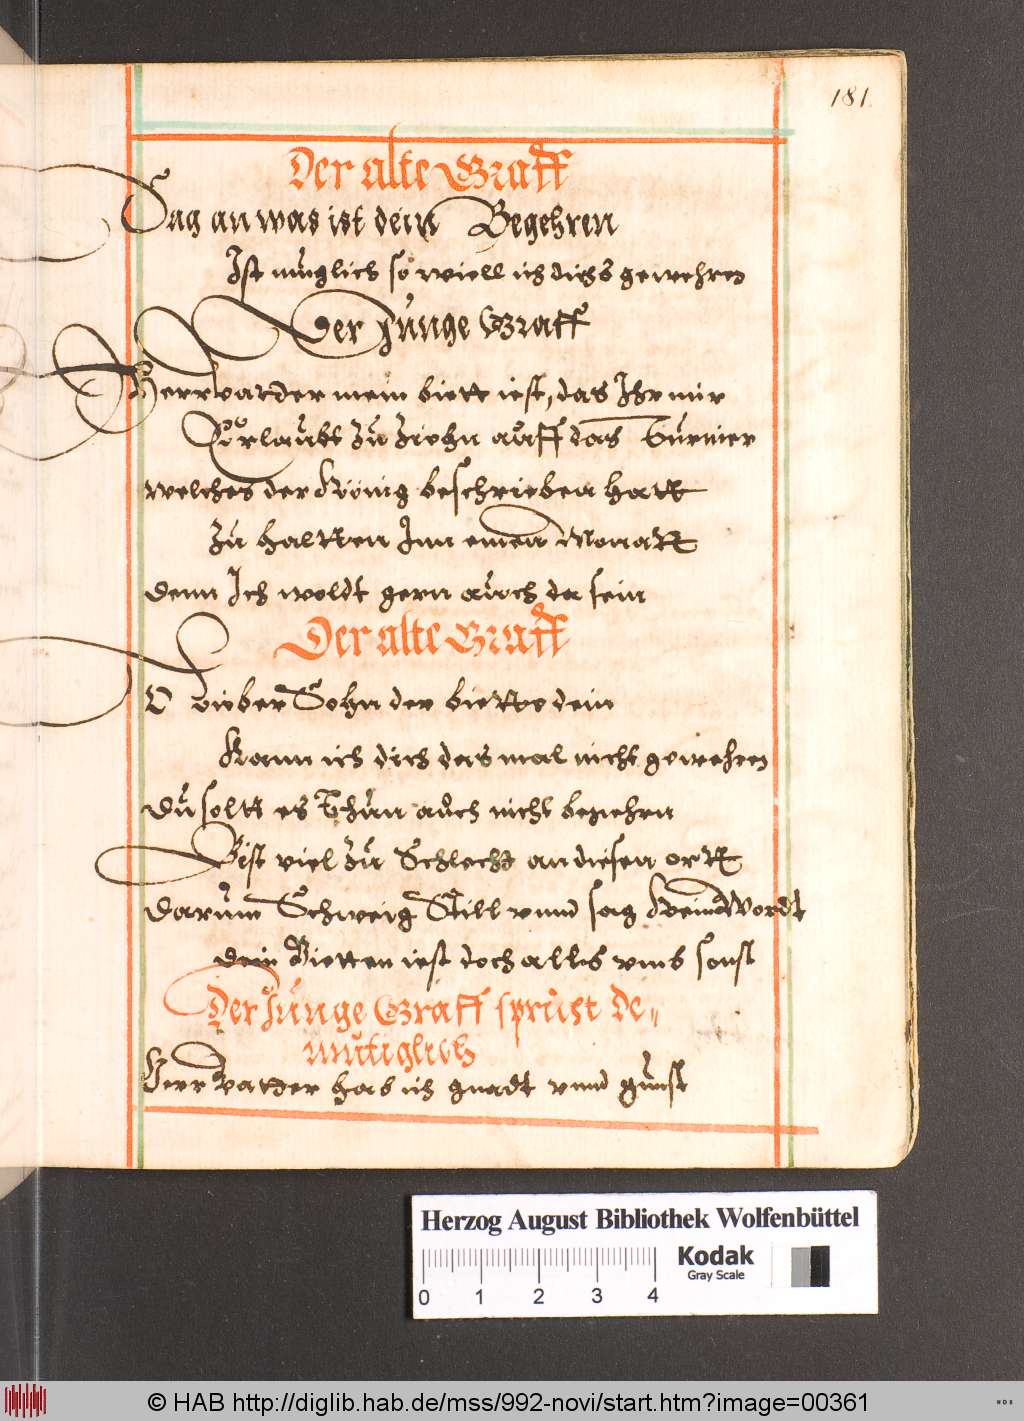 181.
Der alte Graff
Sag an was ist dein Begehren
Ist muglich so wiell ich dichs gewehren
Der Junge Graff
Herr vatder mein biett ist, das Ihr mir
Erlaubt zu ziehn auff das Turnier
welches der König beschrieben hatt
zu haltten Inn einen Monatt
denn Ich woldt gern auch da sein
Der alte Graff
O lieber Sohn der biette dein
Kann ich dich das mal nicht gewehren
Du soltt es Thun auch nicht begehrn
Bist viel zu Schlecht an diesen ortt
darum Schweig Still vnnd sag kein Wordt
dein Bietten iest doch alles vmb sonst
Der Junge Graff spricht De„
mutiglich
Herr vatder hab ich gnadt vnnd gunst
Herzog August Bibliothek Wolfenbüttel
Kodak
Gray Scale
0 1 2 3 4
© HAB http://diglib.hab.de/mss/992-novi/start.htm?image=00361